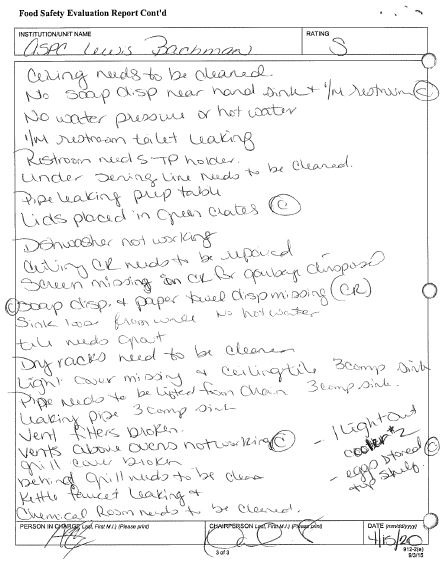 Food Safety Evaluation Report Cont'd
INSTITUTION/UNIT NAME
RATING
ASPC Lewis Bachman
S
Ceiling needs to be cleaned.
No soap disp near hand sink + I/M restroom C
No water pressure or hot water
I/M restroom toilet leaking
Restroom needs TP holder.
Under serving line needs to be cleaned.
Pipe leaking prep table
Lids placed in green crates C
Dishwasher not working
Ceiling CR needs to be repaired
Screen missing on CR for garbage disposal
C soap disp. & paper towel disp missing (CR)
Sink loose from wall No hot water
tile needs grout
Dry racks need to be cleaned
Light cover missing & ceiling tile 3 comp sink
Pipe needs to be lifted from chain 3 comp sink.
leaking pipe 3 comp sink
Vent filters broken.
vents above ovens not working C
- 1 Light out cooler #2
grill cover broken
- eggs stored top shelf. C
behind grill needs to be clean
Kettle faucet leaking &
Chemical Room needs to be cleaned.
PERSON IN CHARGE (Last, First M.I.) (Please print)
CHAIRPERSON (Last, First M.I.) (Please print)
DATE (mm/dd/yyyy)
4/15/20
3 of 3
912-2(e)
9/3/15